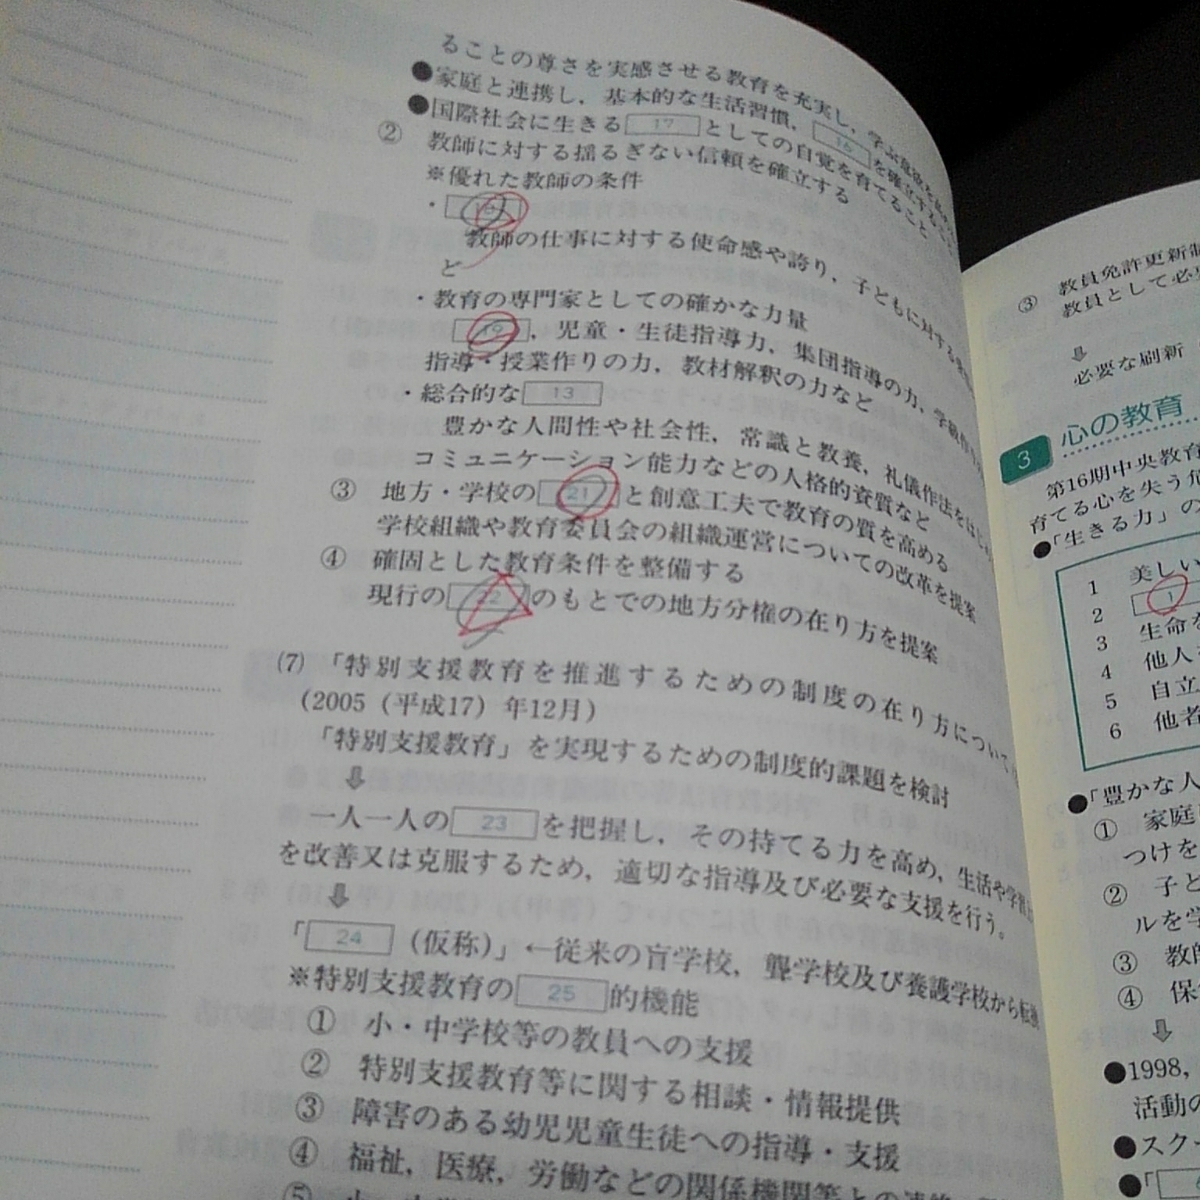 ることの尊さを実感させる教育を充実し，学ぶ意欲を
●家庭と連携し，基本的な生活習慣，16を確立する
●国際社会に生きる17としての自覚を育てること
② 教師に対する揺るぎない信頼を確立する
※優れた教師の条件
・
教師の仕事に対する使命感や誇り，子どもに対する
ど
・教育の専門家としての確かな力量
19，児童・生徒指導力，集団指導の力，学級
指導・授業作りの力，教材解釈の力など
・総合的な13
豊かな人間性や社会性，常識と教養，礼儀作法をはじ
コミュニケーション能力などの人格的資質など
③ 地方・学校の21と創意工夫で教育の質を高める
学校組織や教育委員会の組織運営についての改革を提案
④ 確固とした教育条件を整備する
現行の22のもとでの地方分権の在り方を提案
(7) 「特別支援教育を推進するための制度の在り方について
(2005（平成17）年12月)
「特別支援教育」を実現するための制度的課題を検討
⇩
一人一人の23を把握し，その持てる力を高め，生活や学習
を改善又は克服するため，適切な指導及び必要な支援を行う。
⇩
「24（仮称）」←従来の盲学校，聾学校及び養護学校から転換
※特別支援教育の25的機能
① 小・中学校等の教員への支援
② 特別支援教育等に関する相談・情報提供
③ 障害のある幼児児童生徒への指導・支援
④ 福祉，医療，労働などの関係機関等との
⑤
③ 教員免許更新制
教員として必
⇩
必要な刷新
3 心の教育
第16期中央教育
育てる心を失う危
●「生きる力」の
1 美しい
2 1
3 生命を
4 他人
5 自立
6 他者
●「豊かな人
① 家庭
つけを
② 子ど
ルを学
③ 教師
④ 保
⇩
●1998，
活動の
●スク
●「